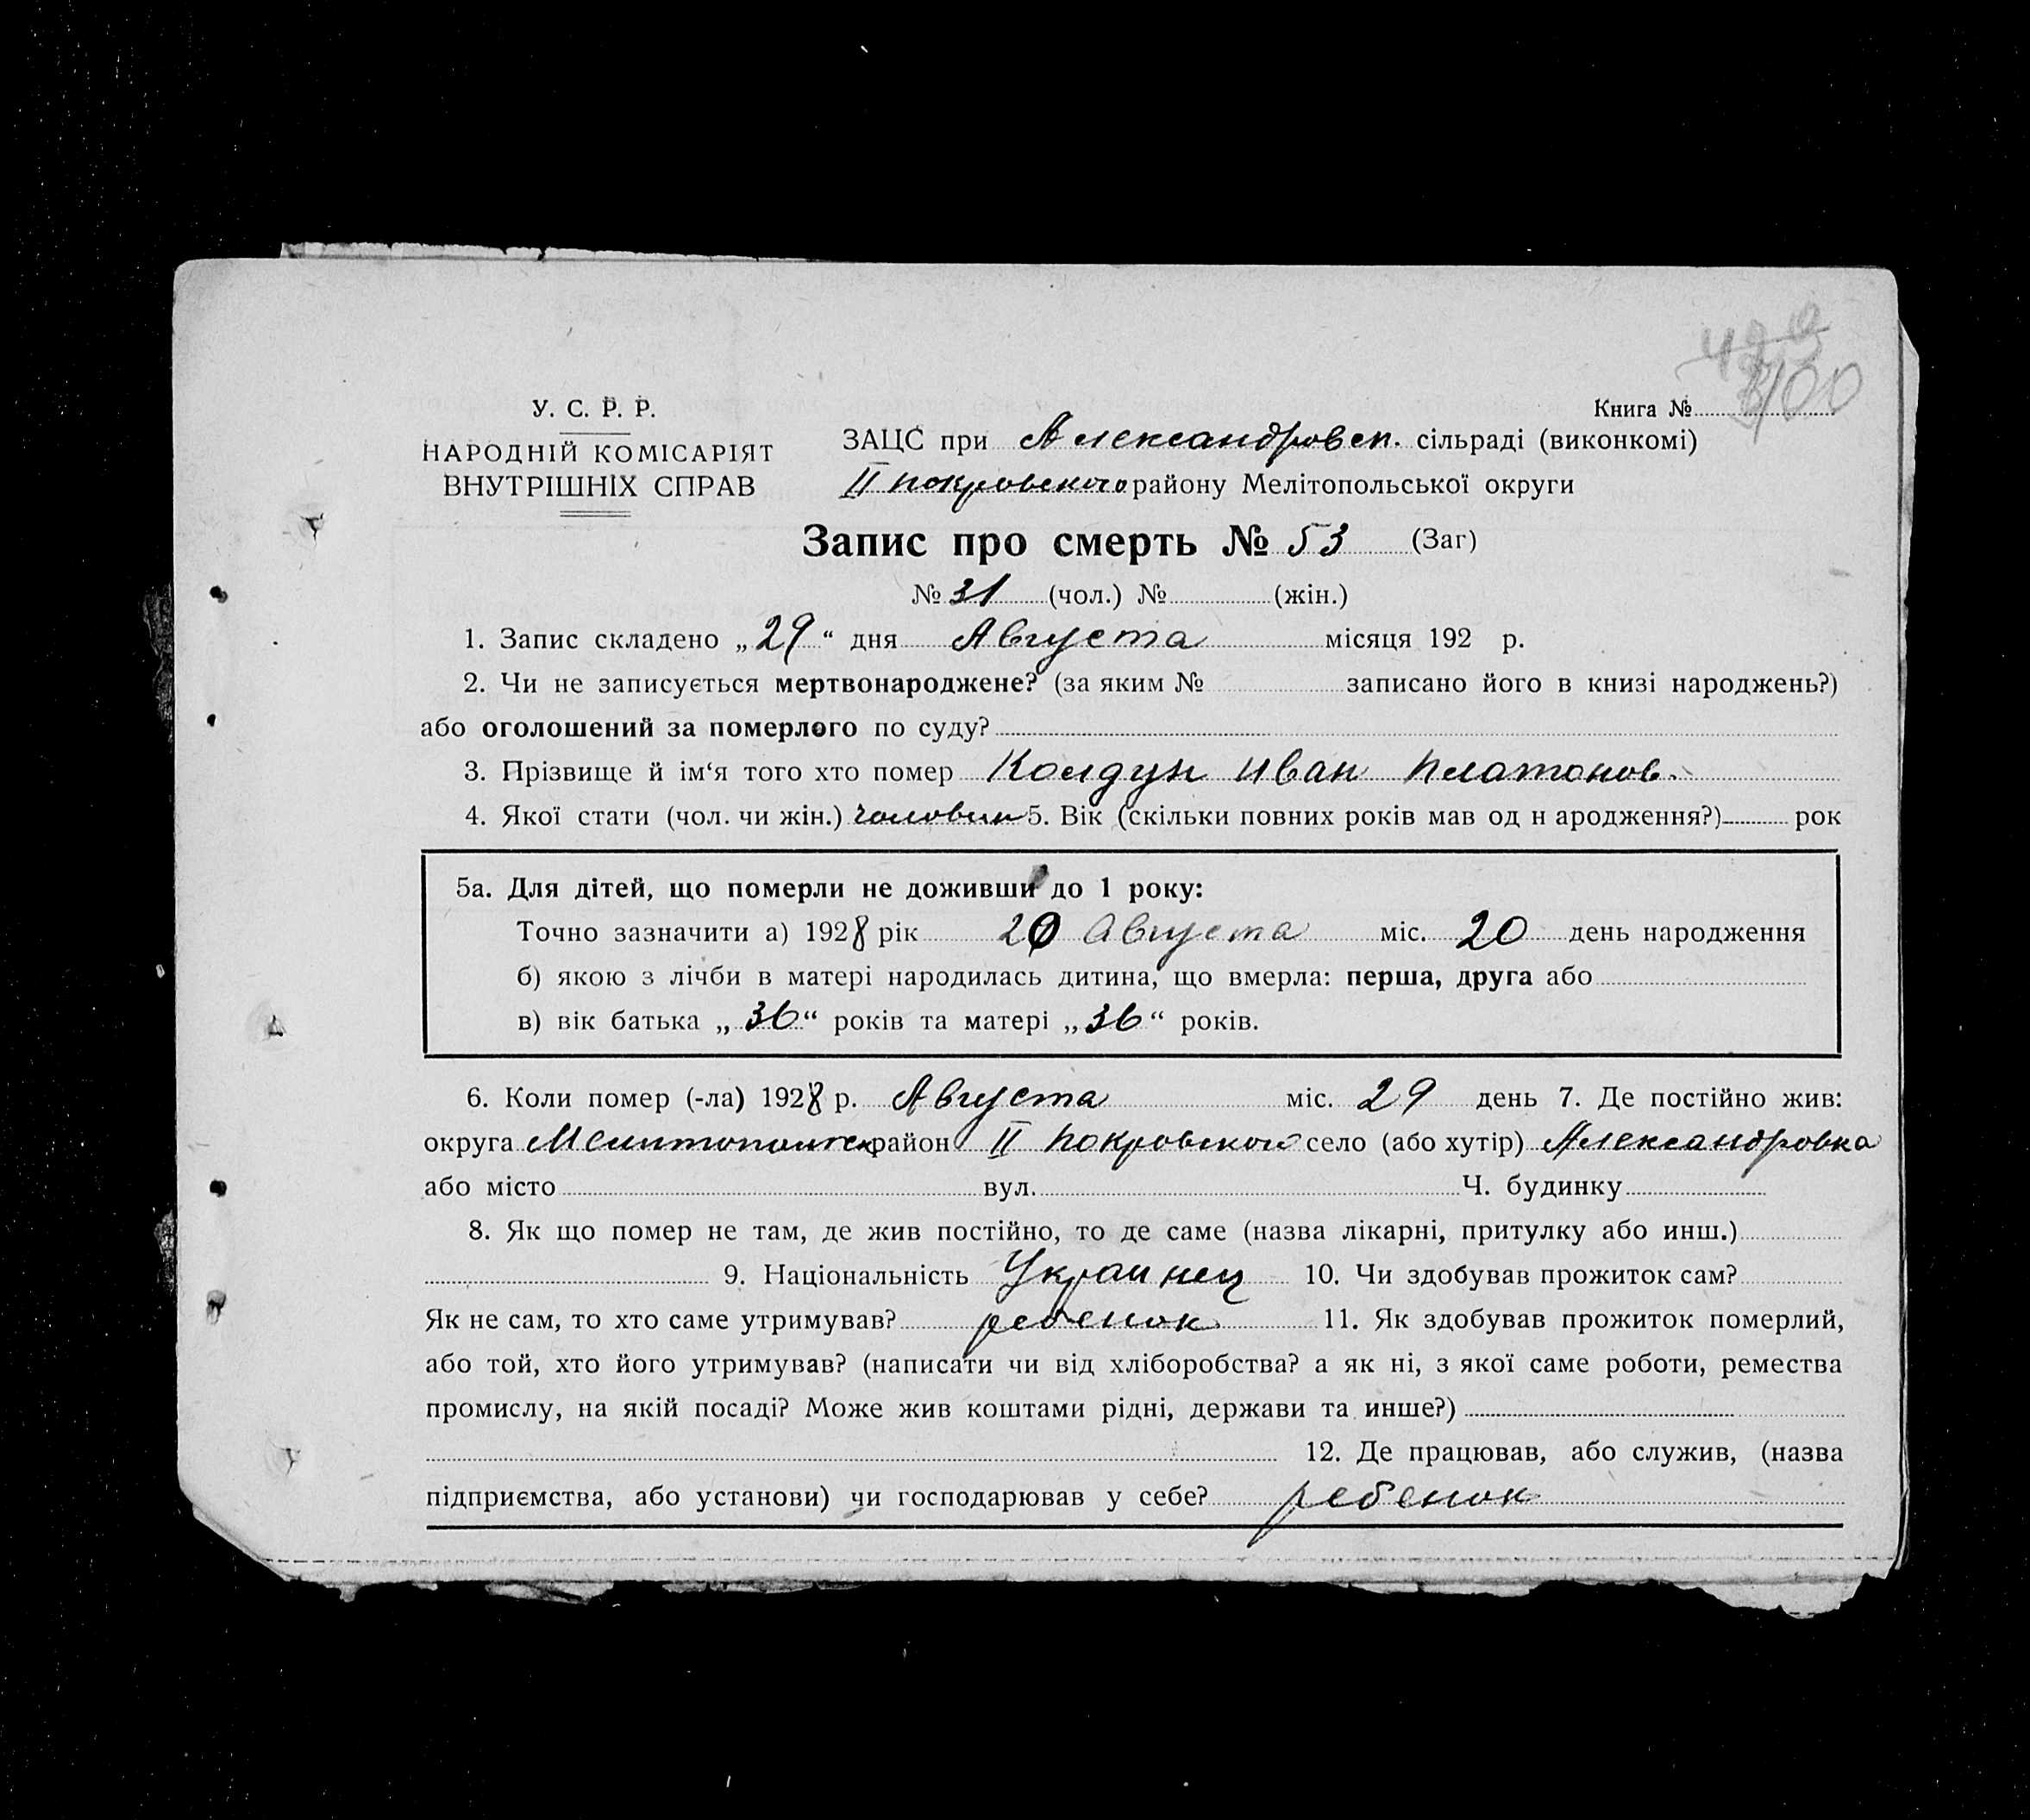 400
У. С. Р. Р.
Книга №
НАРОДНІЙ КОМІСАРІЯТ
ВНУТРІШНІХ СПРАВ
ЗАЦС при Александровсп. сільраді (виконкомі)
II покровского району Мелітопольської округи
Запис про смерть № 53 (Заг)
№ 31 (чол.) № (жін.)
1. Запис складено „29“ дня Августа місяця 192 р.
2. Чи не записується мертвонароджене? (за яким № записано його в книзі народжень?)
або оголошений за померлого по суду?
3. Прізвище й ім‘я того хто помер Колдун Иван Платонов.
4. Якої стати (чол. чи жін.) чоловик 5. Вік (скільки повних років мав од н ародження?) рок
5а. Для дітей, що померли не доживши до 1 року:
Точно зазначити а) 1928 рік 20 Августа міс. 20 день народження
б) якою з лічби в матері народилась дитина, що вмерла: перша, друга або
в) вік батька „36“ років та матері „36“ років.
6. Коли помер (-ла) 1928 р. Августа міс. 29 день 7. Де постійно жив:
округа район II Покровского село (або хутір) Александровка
або місто вул. Ч. будинку
8. Як що помер не там, де жив постійно, то де саме (назва лікарні, притулку або инш.)
9. Національність Украинец 10. Чи здобував прожиток сам?
Як не сам, то хто саме утримував? ребенок 11. Як здобував прожиток померлий,
або той, хто його утримував? (написати чи від хліборобства? а як ні, з якої саме роботи, ремества
промислу, на якій посаді? Може жив коштами рідні, держави та инше?)
12. Де працював, або служив, (назва
підприємства, або установи) чи господарював у себе? ребенок